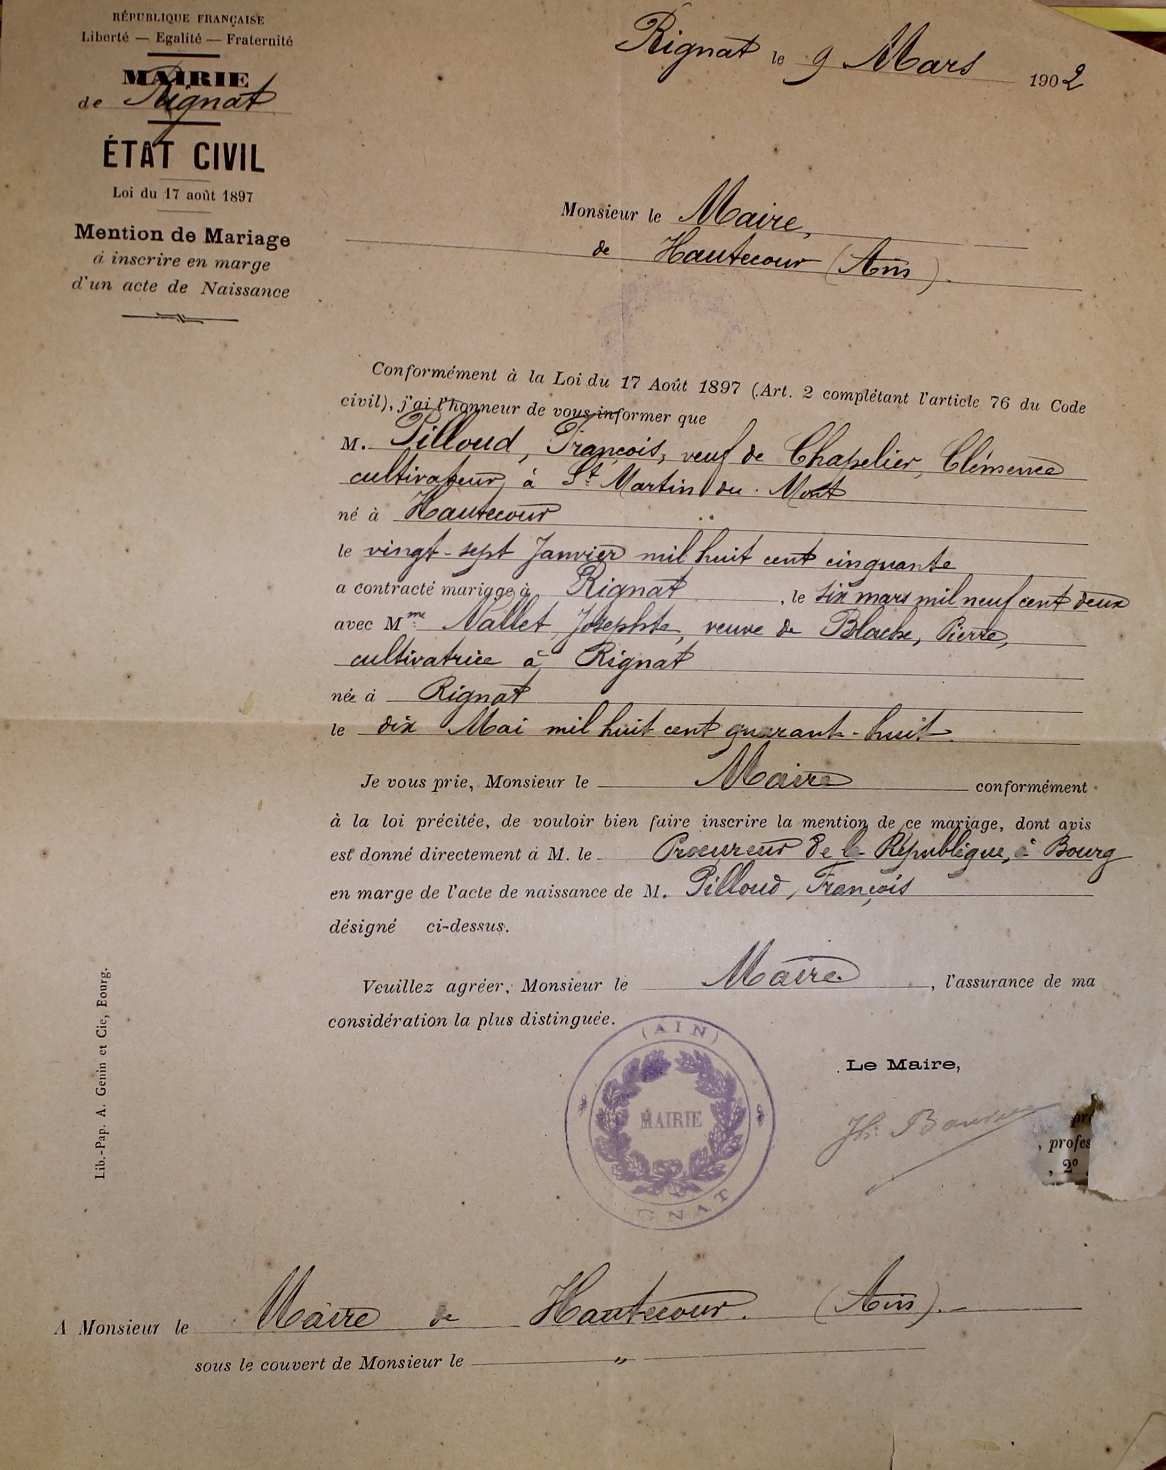 RÉPUBLIQUE FRANÇAISE
Liberté — Egalité — Fraternité
MAIRIE
de Rignat
ÉTAT CIVIL
Loi du 17 août 1897
Mention de Mariage
à inscrire en marge
d'un acte de Naissance
Rignat le 9 Mars 1902
Monsieur le Maire,
de Hautecour (Ain).
Conformément à la Loi du 17 Août 1897 (Art. 2 complétant l'article 76 du Code
civil), j'ai l'honneur de vous informer que
M. Pilloud, François, veuf de Chapelier, Clémence
cultivateur, à St Martin du Mont
né à Hautecour
le vingt-sept Janvier mil huit cent cinquante
a contracté mariage à Rignat, le six mars mil neuf cent deux
avec Mme Nallet, Josephte, veuve de Blache, Pierre,
cultivatrice à Rignat
née à Rignat
le dix Mai mil huit cent quarant-huit.
Je vous prie, Monsieur le Maire conformément
à la loi précitée, de vouloir bien faire inscrire la mention de ce mariage, dont avis
est donné directement à M. le Procureur de la République, à Bourg
en marge de l'acte de naissance de M. Pilloud, François
désigné ci-dessus.
Veuillez agréer, Monsieur le Maire, l'assurance de ma
considération la plus distinguée.
(AIN)
MAIRIE
GNAT
Le Maire,
, profes
, 2°
Lib.-Pap. A. Genin et Cie, Bourg.
A Monsieur le Maire de Hautecour. (Ain).
sous le couvert de Monsieur le "